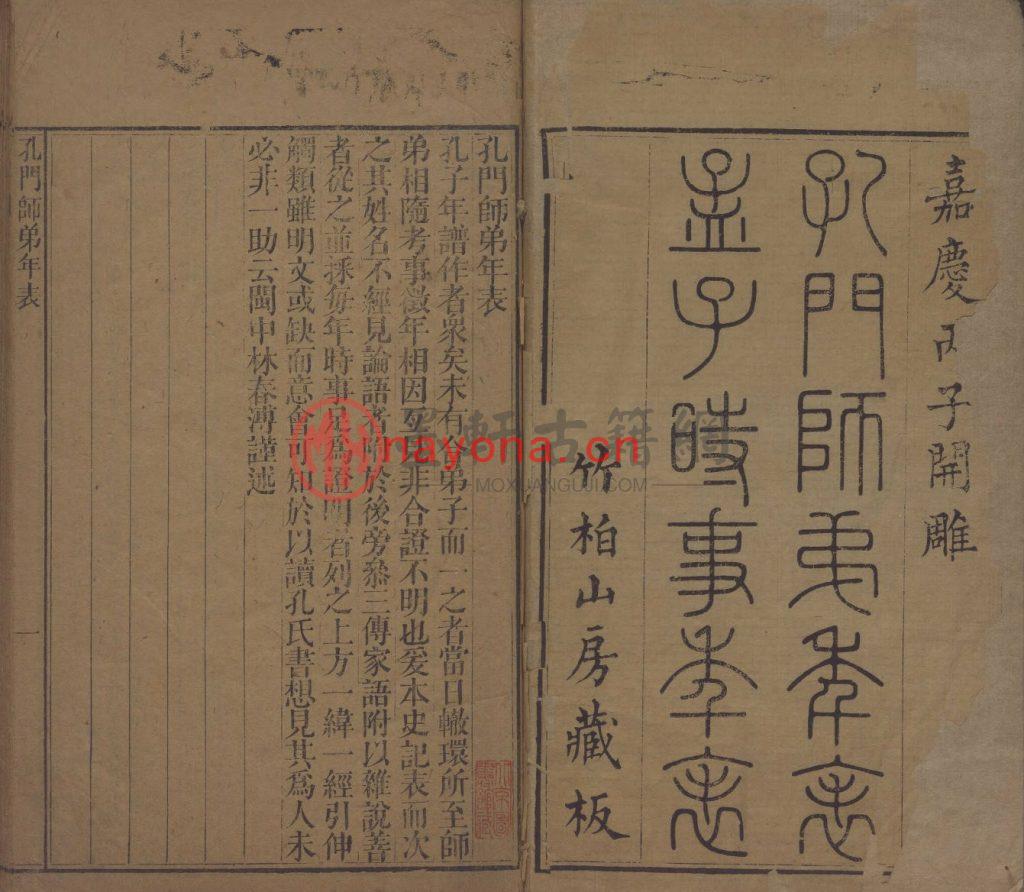 嘉慶丙子開雕
孔門師弟年表
孟子時事年表
竹柏山房藏板
孔門師弟年表
孔子年譜作者衆矣未有合弟子而一之者當日轍環所至師
弟相隨考事徵年相因互見非合證不明也爰本史記表而次
之其姓名不經見論語者附於後旁叅三傳家語附以雜說善
者從之並採每年時事足爲證明者列之上方一緯一經引伸
觸類雖明文或缺而意會可知於以讀孔氏書想見其爲人未
必非一助云閩中林春溥謹述
孔門師弟年表
一
墨軒古籍網
nayona.cn
MOXUANGUJI.COM